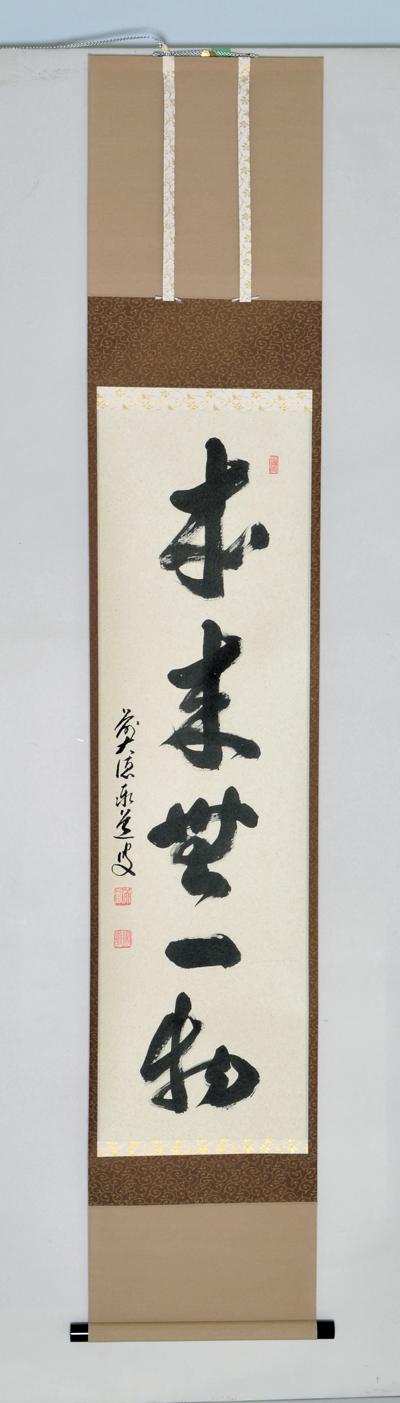 本来無一物
前大徳永道叟